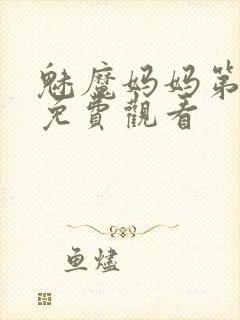 魅魔妈妈第
免費觀看
鱼燼